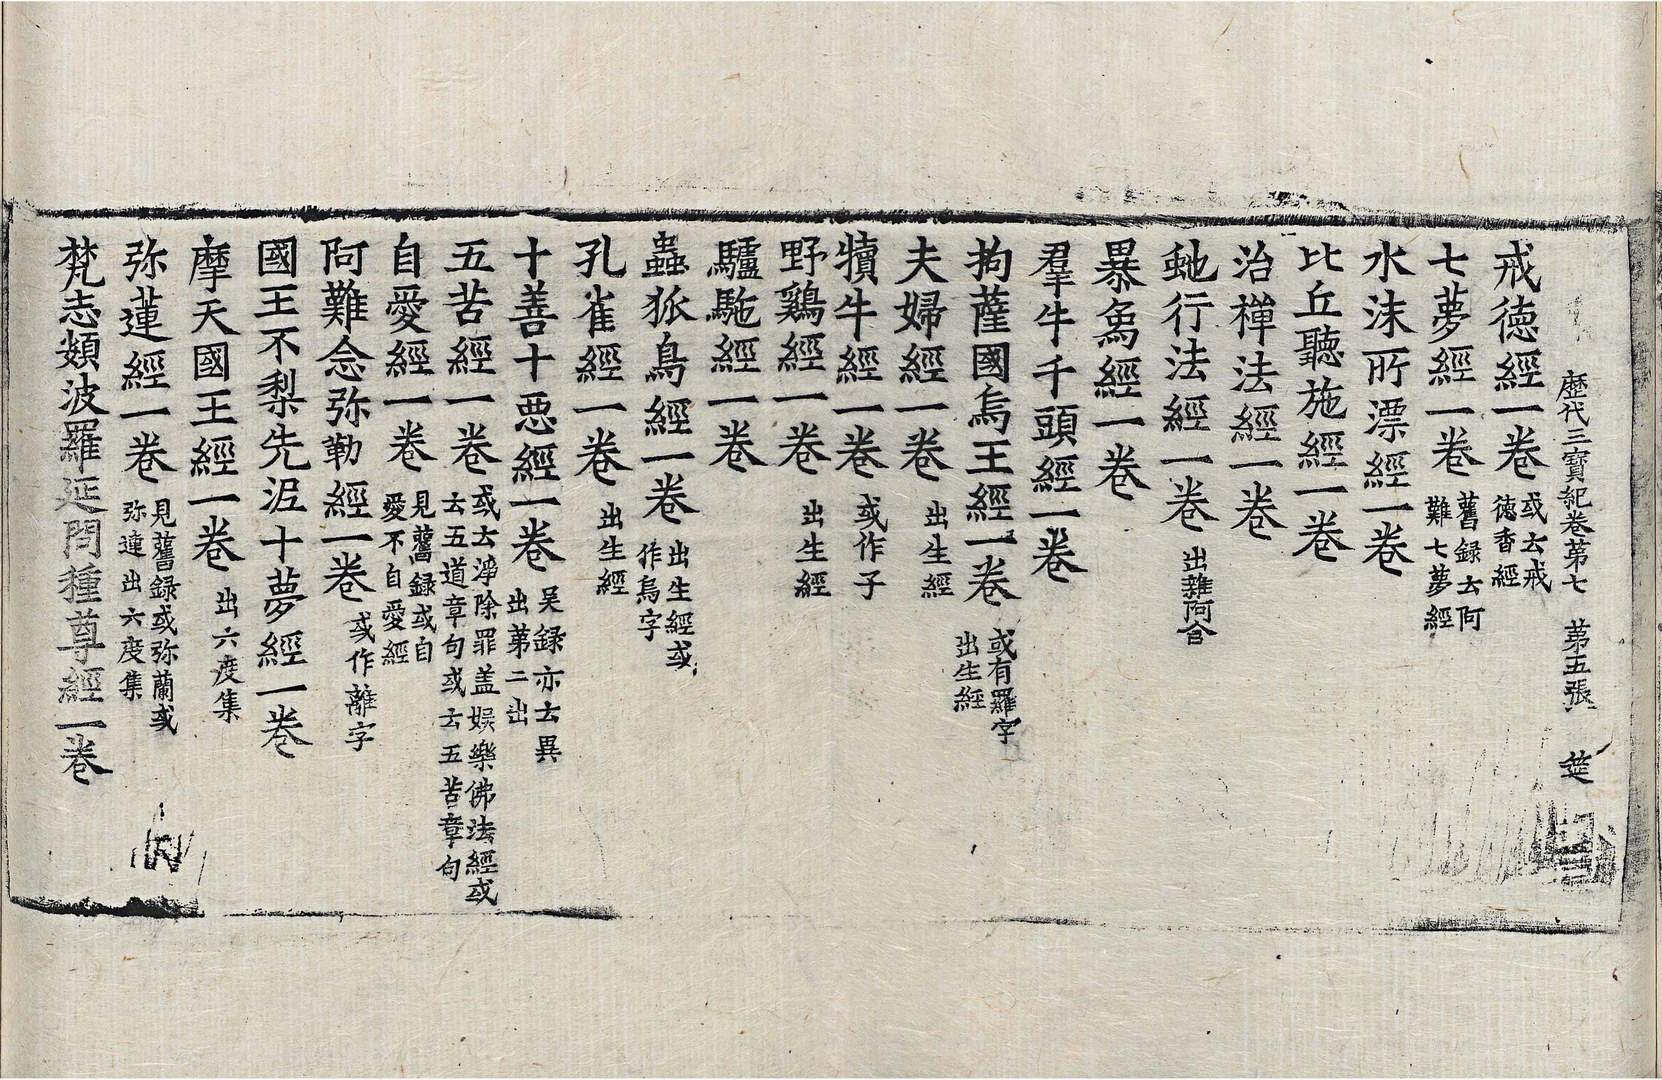 歷代三寶紀卷第七　第五張　筵
戒徳經一卷 或云戒徳香經
七夢經一卷 舊録云阿難七夢經
水沫所漂經一卷
比丘聽施經一卷
治禪法經一卷
虵行法經一卷 出雜阿含
暴象經一卷
羣牛千頭經一卷
拘薩國烏王經一卷 或有羅字出生經
夫婦經一卷 出生經
犢牛經一卷 或作子
野鷄經一卷 出生經
驢駞經一卷
蟲狐鳥經一卷 出生經或作烏字
孔雀經一卷 出生經
十善十惡經一卷 吴録亦云異出第二出
五苦經一卷 或云淨除罪盖娱樂佛法經或云五道章句或云五苦章句
自愛經一卷 見舊録或自愛不自愛經
阿難念弥勒經一卷 或作離字
國王不梨先泥十夢經一卷
摩天國王經一卷 出六度集
弥蓮經一卷 見舊録或弥蘭或弥連出六度集
梵志頞波羅延問種尊經一卷